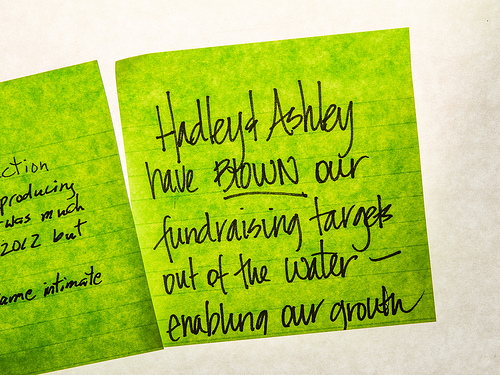 ction
producing
was much
2012 but
ame intimate
Hadley & Ashley
have BLOWN our
fundraising targets
out of the water —
enabling our growth